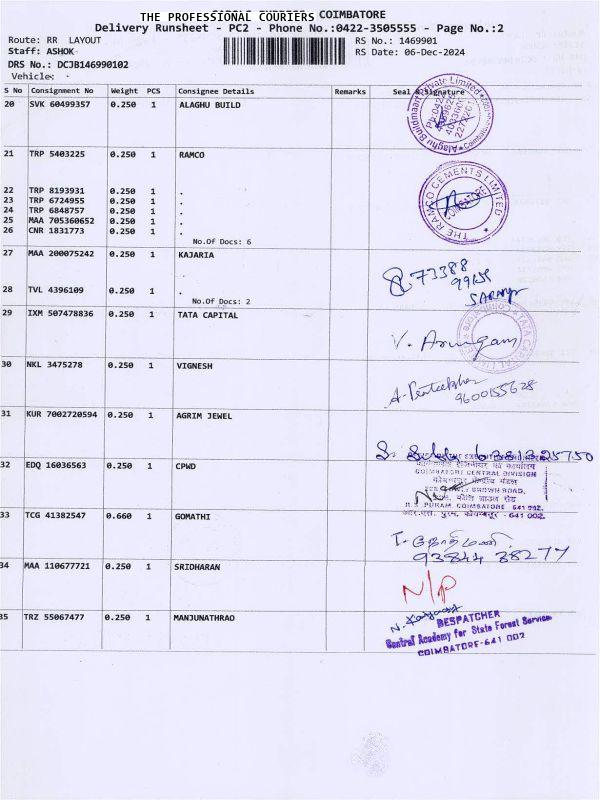 THE PROFESSIONAL COURIERS COIMBATORE
Delivery Runsheet - PC2 - Phone No.:0422-3505555 - Page No.:2
Route: RR LAYOUT
RS No.: 1469901
Staff: ASHOK
RS Date: 06-Dec-2024
DRS No.: DCJB146990102
Vehicle:
S No Consignment No Weight PCS Consignee Details Remarks Seal & Signature
20 SVK 60499357 0.250 1 ALAGHU BUILD
21 TRP 5403225 0.250 1 RAMCO
THE RAMCO CEMENTS LIMITED
COIMBATORE
22 TRP 8193931 0.250 1 .
23 TRP 6724955 0.250 1 .
24 TRP 6848757 0.250 1 .
25 MAA 705360652 0.250 1 .
26 CNR 1831773 0.250 1 .
No.Of Docs: 6
27 MAA 200075242 0.250 1 KAJARIA
73388
28 TVL 4396109 0.250 1 .
No.Of Docs: 2
29 IXM 507478836 0.250 1 TATA CAPITAL
TATA CAPITAL LIMITED
V. Arumugam
30 NKL 3475278 0.250 1 VIGNESH
9600155628
31 KUR 7002720594 0.250 1 AGRIM JEWEL
32 EDQ 16036563 0.250 1 CPWD
COIMBATORE CENTRAL DIVISION
R.S. PURAM, COIMBATORE 641 002.
आर.एस. पुरम, कोयम्बटूर - 641 002
33 TCG 41382547 0.660 1 GOMATHI
93844 38277
34 MAA 110677721 0.250 1 SRIDHARAN
N/P
35 TRZ 55067477 0.250 1 MANJUNATHRAO
DESPATCHER
Central Academy for State Forest Service
COIMBATORE-641 002